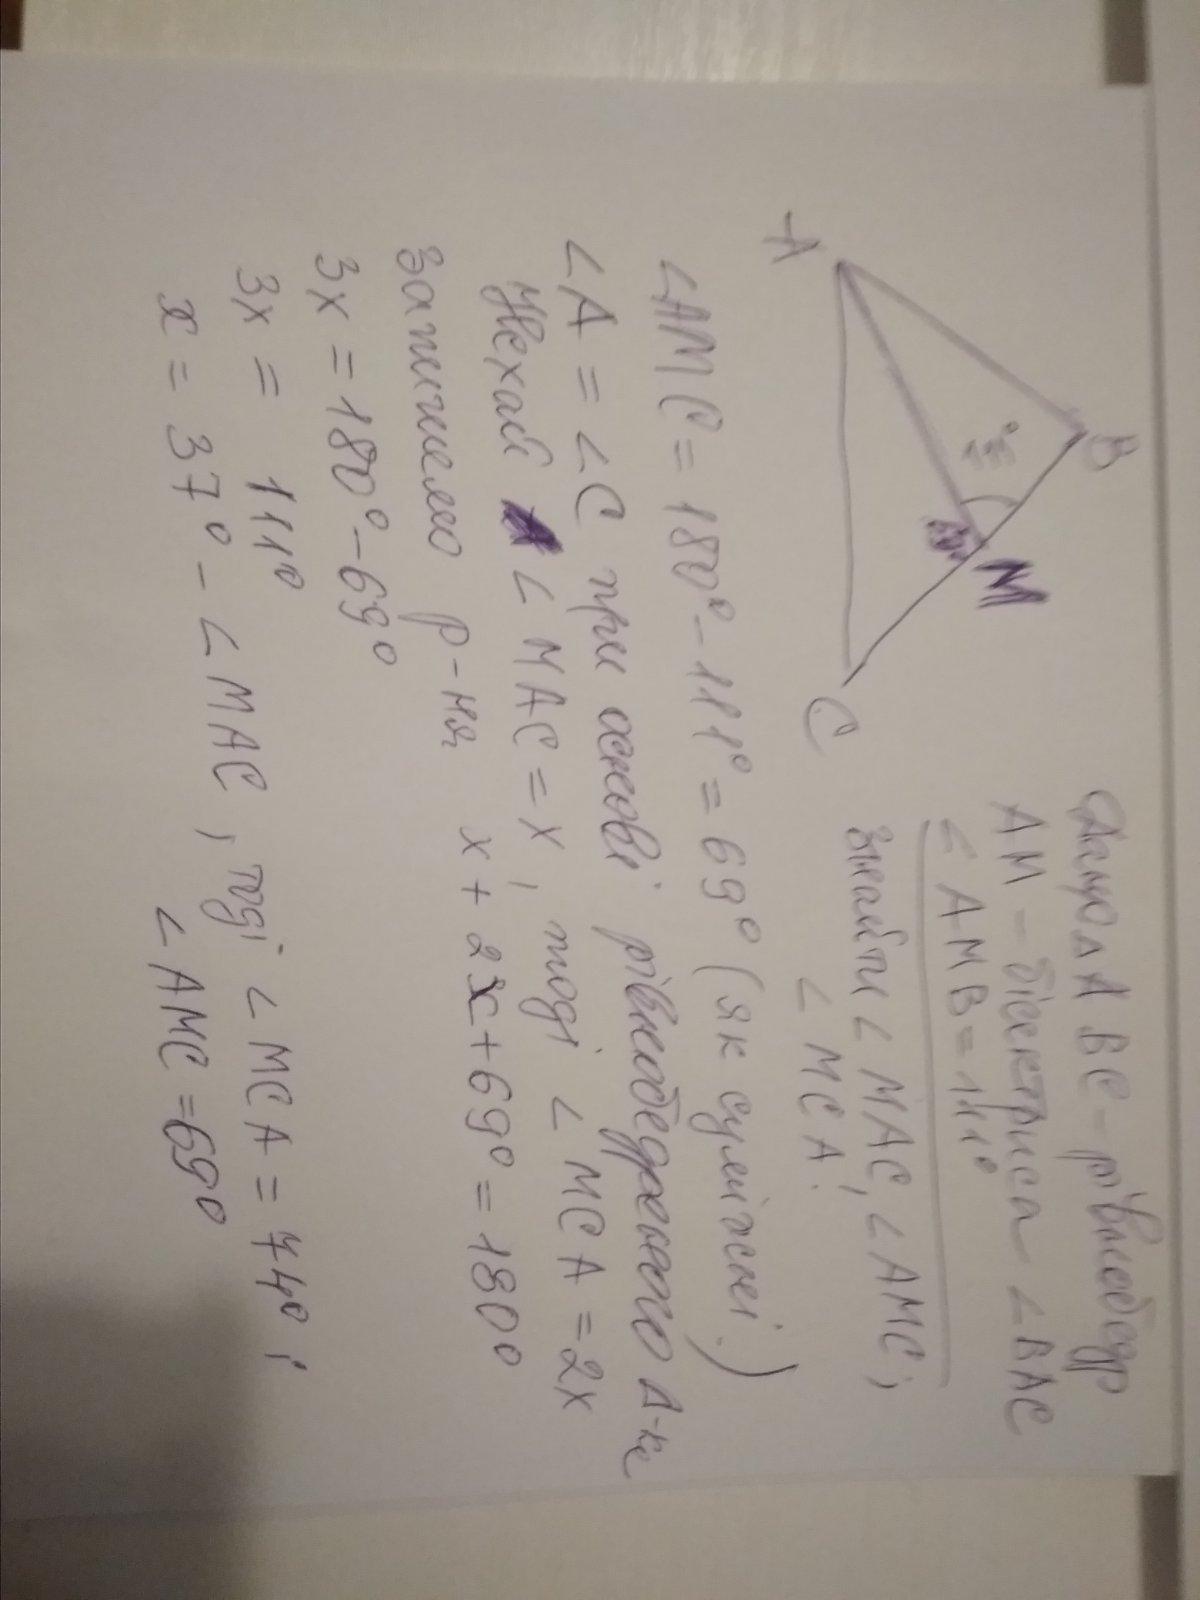 B
111°
M
69°
A
C
Дано Δ ABC - рівнобедр
AM - бісектриса ∠BAC
∠AMB = 111°
Знайти ∠MAC, ∠AMC,
∠MCA.
∠AMC = 180° - 111° = 69° (як суміжні.)
∠A = ∠C при основі рівнобедреного Δ-ка
Нехай ∠MAC = x, тоді ∠MCA = 2x
Запишемо р-ня x + 2x + 69° = 180°
3x = 180° - 69°
3x = 111°
x = 37° - ∠MAC, тоді ∠MCA = 74°;
∠AMC = 69°